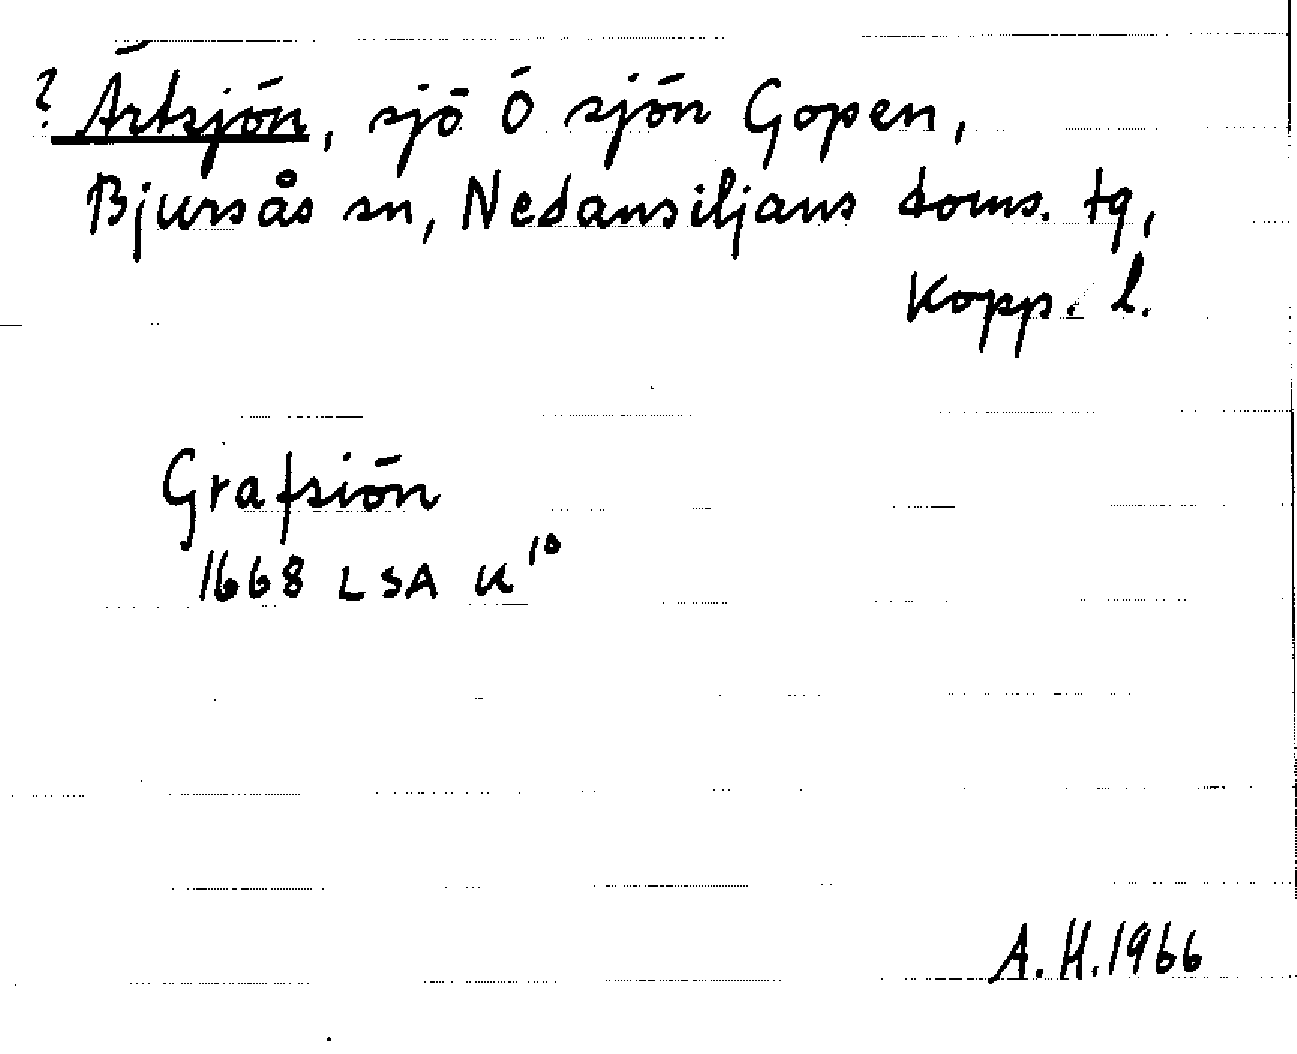 ? Ärtsjön, sjö Ö sjön Gopen,
Bjursås sn, Nedansiljans doms. tg,
Kopp. l.
Grafsiön
1668 LSA K¹⁰
A.H.1966